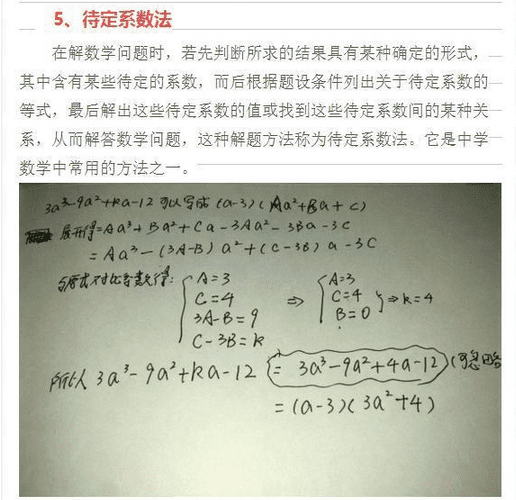 5、待定系数法
在解数学问题时，若先判断所求的结果具有某种确定的形式，
其中含有某些待定的系数，而后根据题设条件列出关于待定系数的
等式，最后解出这些待定系数的值或找到这些待定系数间的某种关
系，从而解答数学问题，这种解题方法称为待定系数法。它是中学
数学中常用的方法之一。
3a³-9a²+ka-12 可以写成 (a-3)(Aa²+Ba+C)
展开得=Aa³+Ba²+Ca-3Aa²-3Ba-3C
=Aa³-(3A-B)a²+(C-3B)a-3C
与原式对比系数得: A=3 A=3
C=4 ⇒ C=4 ⇒k=4
3A-B=9 B=0
C-3B=k
所以 3a³-9a²+ka-12 = 3a³-9a²+4a-12 (可忽略
=(a-3)(3a²+4)